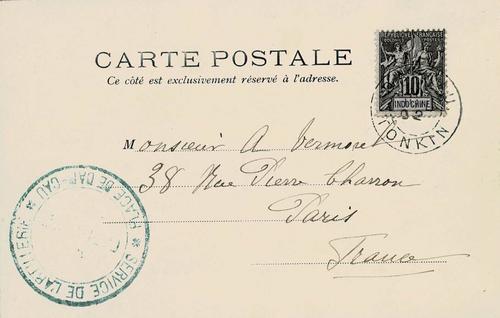 CARTE POSTALE
Ce côté est exclusivement réservé à l'adresse.
RÉPUBLIQUE FRANÇAISE
10
INDO-CHINE
02
TONKIN
Monsieur A Vermorel
38 Rue Pierre Charron
Paris
France
SERVICE DE L'ARTILLERIE * PLACE DE DAP-CAU *